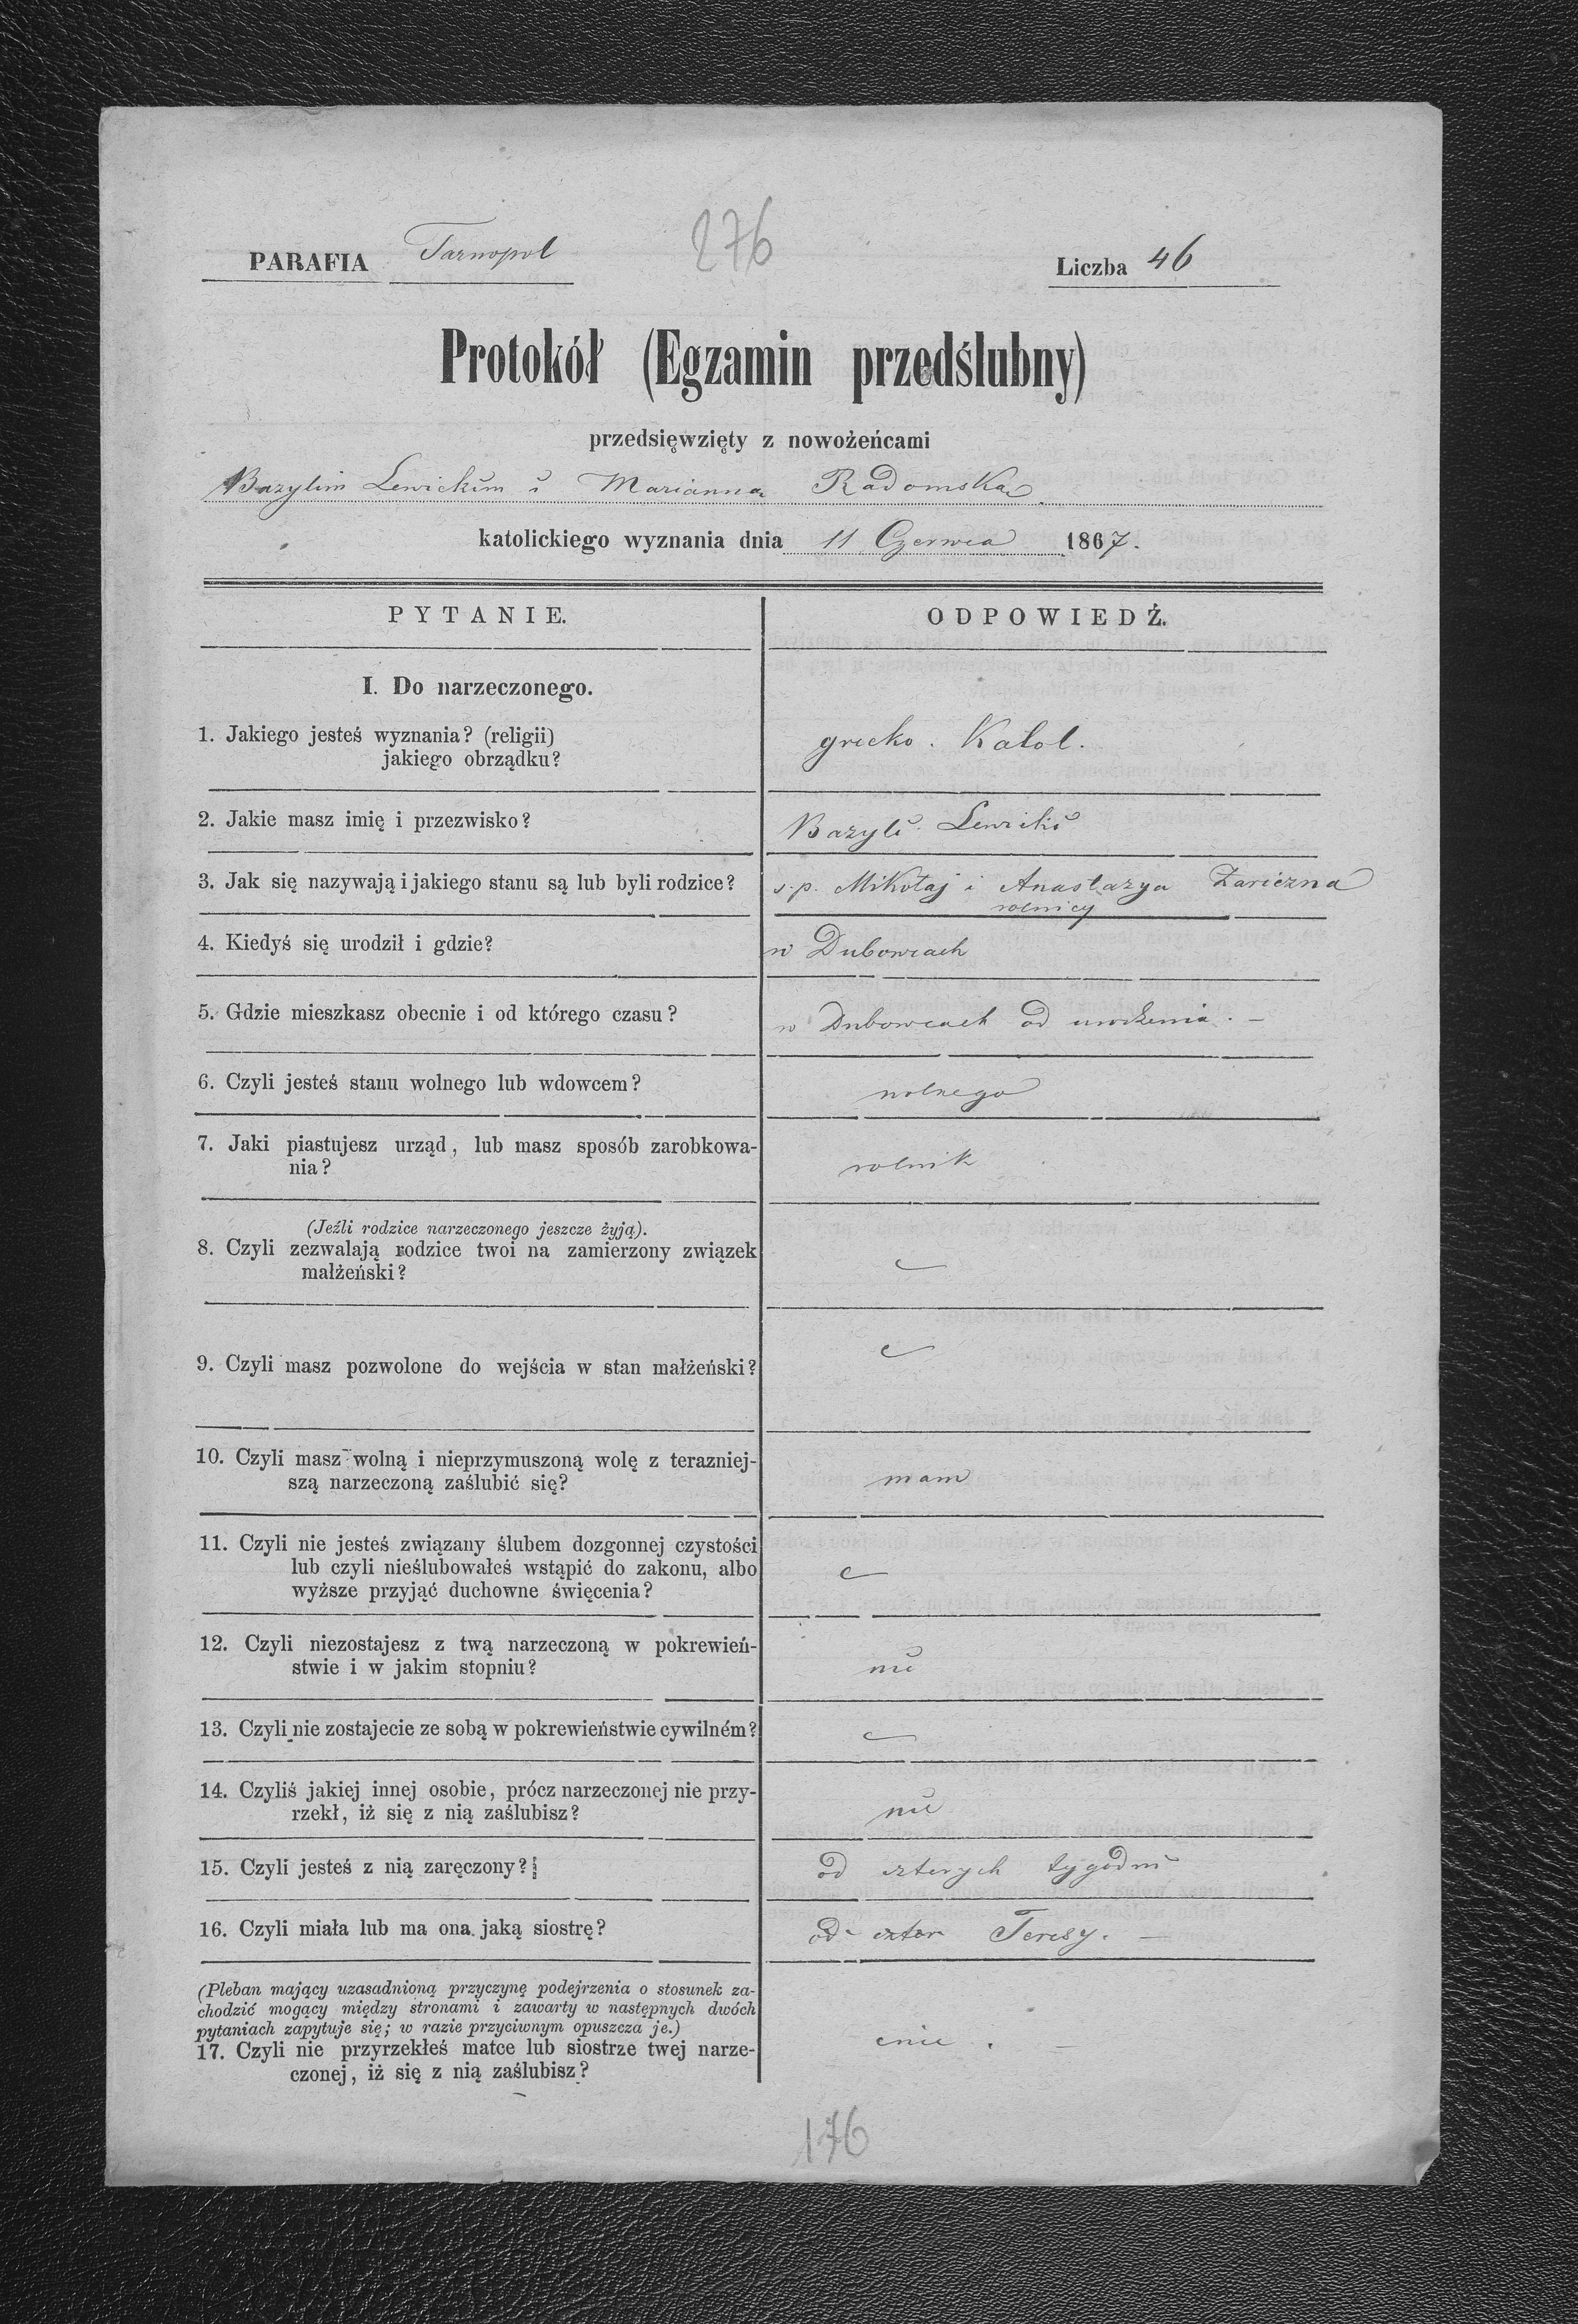 276
PARAFIA Tarnopol
Liczba 46
Protokół (Egzamin przedślubny)
przedsięwzięty z nowożeńcami
Bazylim Lewickim i Marianna Radomska
katolickiego wyznania dnia 11 Czerwca 1867.
PYTANIE.
ODPOWIEDŹ.
I. Do narzeczonego.
1. Jakiego jesteś wyznania? (religii)
jakiego obrządku?
grecko. Katol.
2. Jakie masz imię i przezwisko?
Bazyli Lewicki
3. Jak się nazywają i jakiego stanu są lub byli rodzice?
s.p. Mikołaj i Anastazya Zariczna
rolnicy
4. Kiedyś się urodził i gdzie?
w Dubowcach
5. Gdzie mieszkasz obecnie i od którego czasu?
w Dubowcach od urodzenia. —
6. Czyli jesteś stanu wolnego lub wdowcem?
wolnego
7. Jaki piastujesz urząd, lub masz sposób zarobkowa-
nia?
rolnik
(Jeźli rodzice narzeczonego jeszcze żyją).
8. Czyli zezwalają rodzice twoi na zamierzony związek
małżeński?
9. Czyli masz pozwolone do wejścia w stan małżeński?
10. Czyli masz wolną i nieprzymuszoną wolę z terazniej-
szą narzeczoną zaślubić się?
mam
11. Czyli nie jesteś związany ślubem dozgonnej czystości
lub czyli nieślubowałeś wstąpić do zakonu, albo
wyższe przyjąć duchowne święcenia?
12. Czyli niezostajesz z twą narzeczoną w pokrewień-
stwie i w jakim stopniu?
nie
13. Czyli nie zostajecie ze sobą w pokrewieństwie cywilném?
14. Czyliś jakiej innej osobie, prócz narzeczonej nie przy-
rzekł, iż się z nią zaślubisz?
nie
15. Czyli jesteś z nią zaręczony?
od czterych tygodni
16. Czyli miała lub ma ona jaką siostrę?
Teresy. —
(Pleban mający uzasadnioną przyczynę podejrzenia o stosunek za-
chodzić mogący między stronami i zawarty w następnych dwóch
pytaniach zapytuje się; w razie przyciwnym opuszcza je.)
17. Czyli nie przyrzekłeś matce lub siostrze twej narze-
czonej, iż się z nią zaślubisz?
176